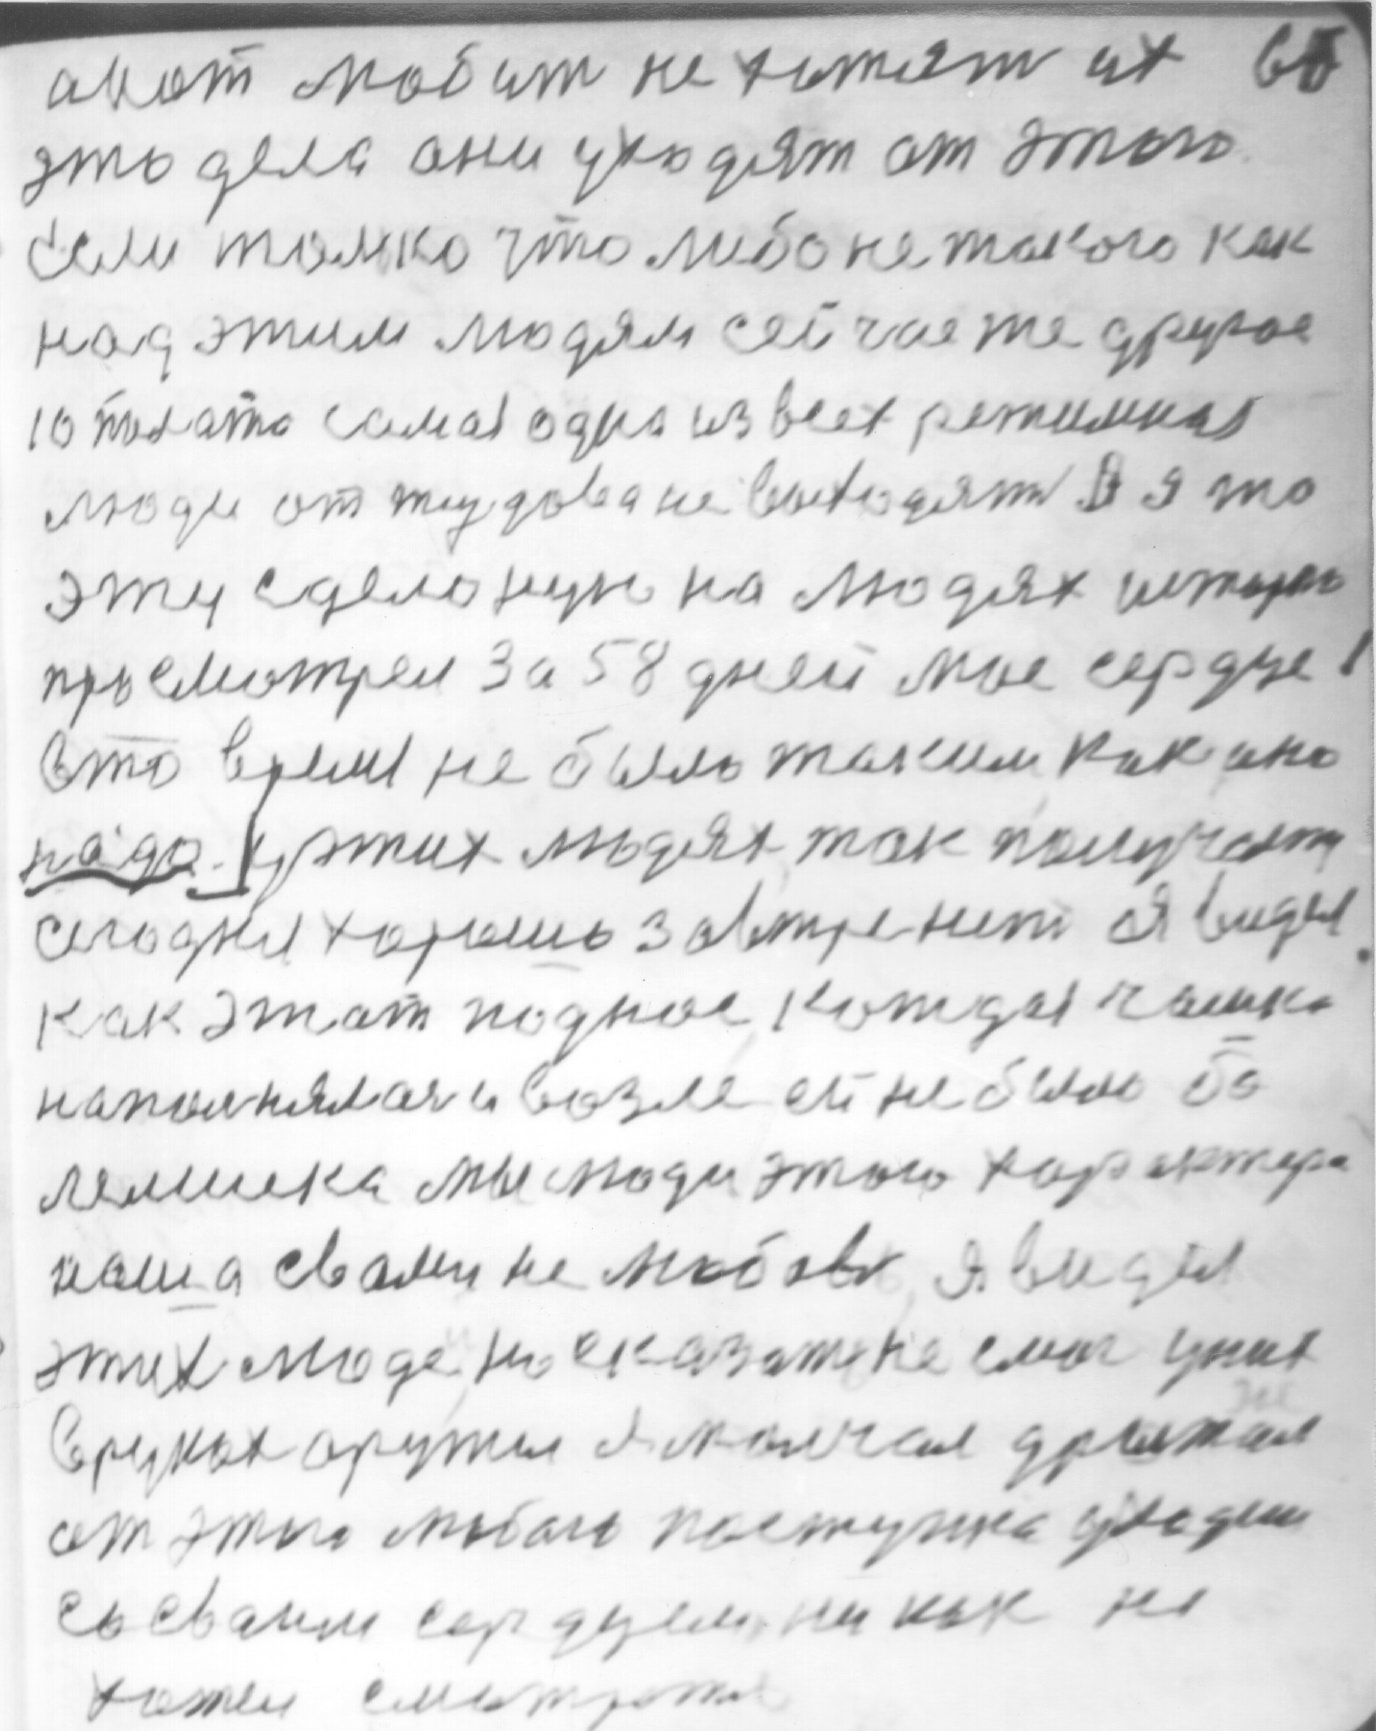 авот любит не хотят их 65
это дела они уходят от этого
если толко что либо не такого как
над этим людям сейчасже другое
10 полата самая одна из всех режимная
люди от тудова не выходят В я то
эту сделоную на людях историю
просмотрел за 58 дней мое сердце!
вто время не было таким как ано
надо. у этих людях так получает
сегодня хорошо завтре нет я видел
как этат поднос, каждая чашка
наполнялася и возле ей не было бо
лельшика мы люди этого характера
наша свами не любовь, я видел
этих люде, но сказать не смог уних
вруках оружия я молчал дражал
от этого любого поступка уходил
со своим сердцем, ни как не
хотел смотрать